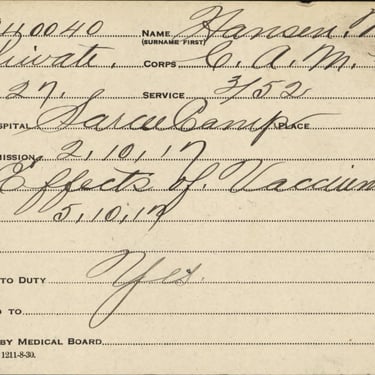 40040 NAME Hansen,
(SURNAME FIRST)
Private. CORPS C. A. M.
27. SERVICE 3/52
SPITAL Sarcee Camp PLACE
MISSION 2,10,17
Effects of Vaccin
5,10,17
TO DUTY Yes.
D TO
BY MEDICAL BOARD
1211-8-30.